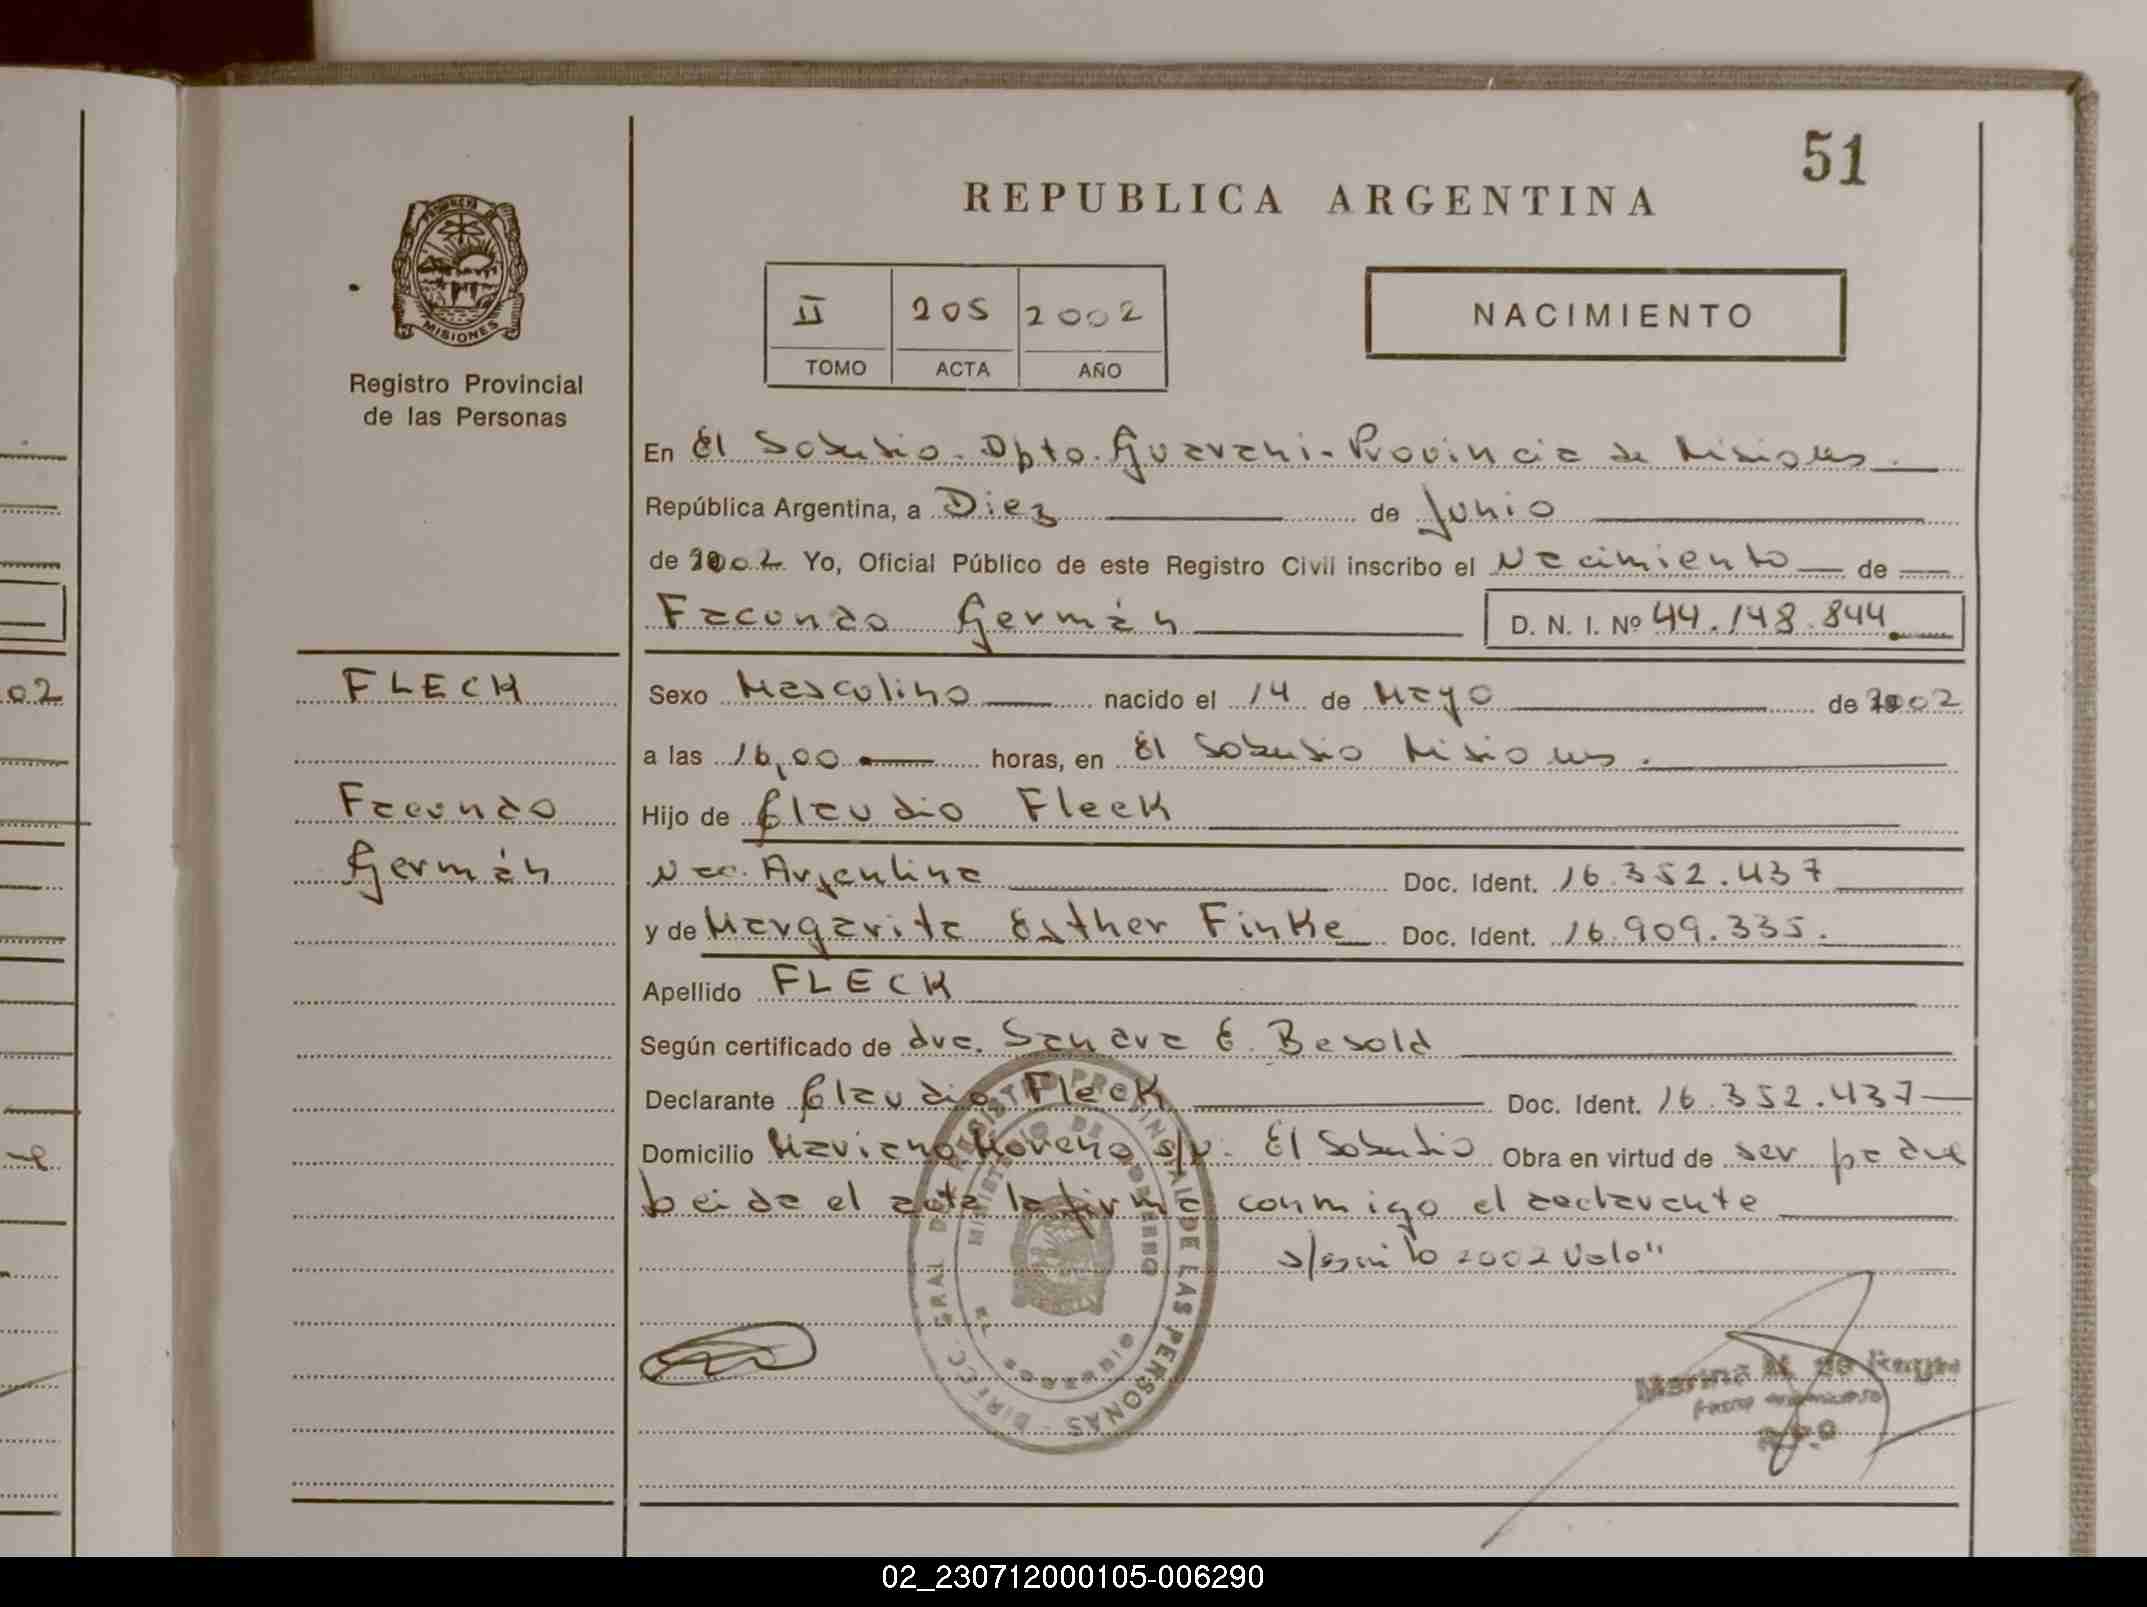 51
REPUBLICA ARGENTINA
PROVINCIA DE
MISIONES
Registro Provincial
de las Personas
II 205 2002
TOMO ACTA AÑO
NACIMIENTO
En El Soberbio - Dpto. Guarani - Provincia de Misiones.
República Argentina, a Diez de Junio
de 2002 Yo, Oficial Público de este Registro Civil inscribo el Nacimiento de
Facundo Germán D. N. I. Nº 44.148.844
FLECK
Facundo
Germán
Sexo Masculino nacido el 14 de Mayo de 2002
a las 16,00 horas, en El Soberbio Misiones.
Hijo de Claudio Fleck
Nac. Argentina Doc. Ident. 16.352.437
y de Margarita Esther Finke Doc. Ident. 16.909.335.
Apellido FLECK
Según certificado de dra. Sandra E. Besold
Declarante Claudio Fleck Doc. Ident. 16.352.437
Domicilio Mariano Moreno s/n. El Soberbio Obra en virtud de ser padre
leida el acta la firma conmigo el declarante
s/escrito 2002 Vale"
DIRECC. GRAL DE REGISTRO PROVINCIAL DE LAS PERSONAS
MINISTERIO DE GOBIERNO
Marina
02
02_230712000105-006290